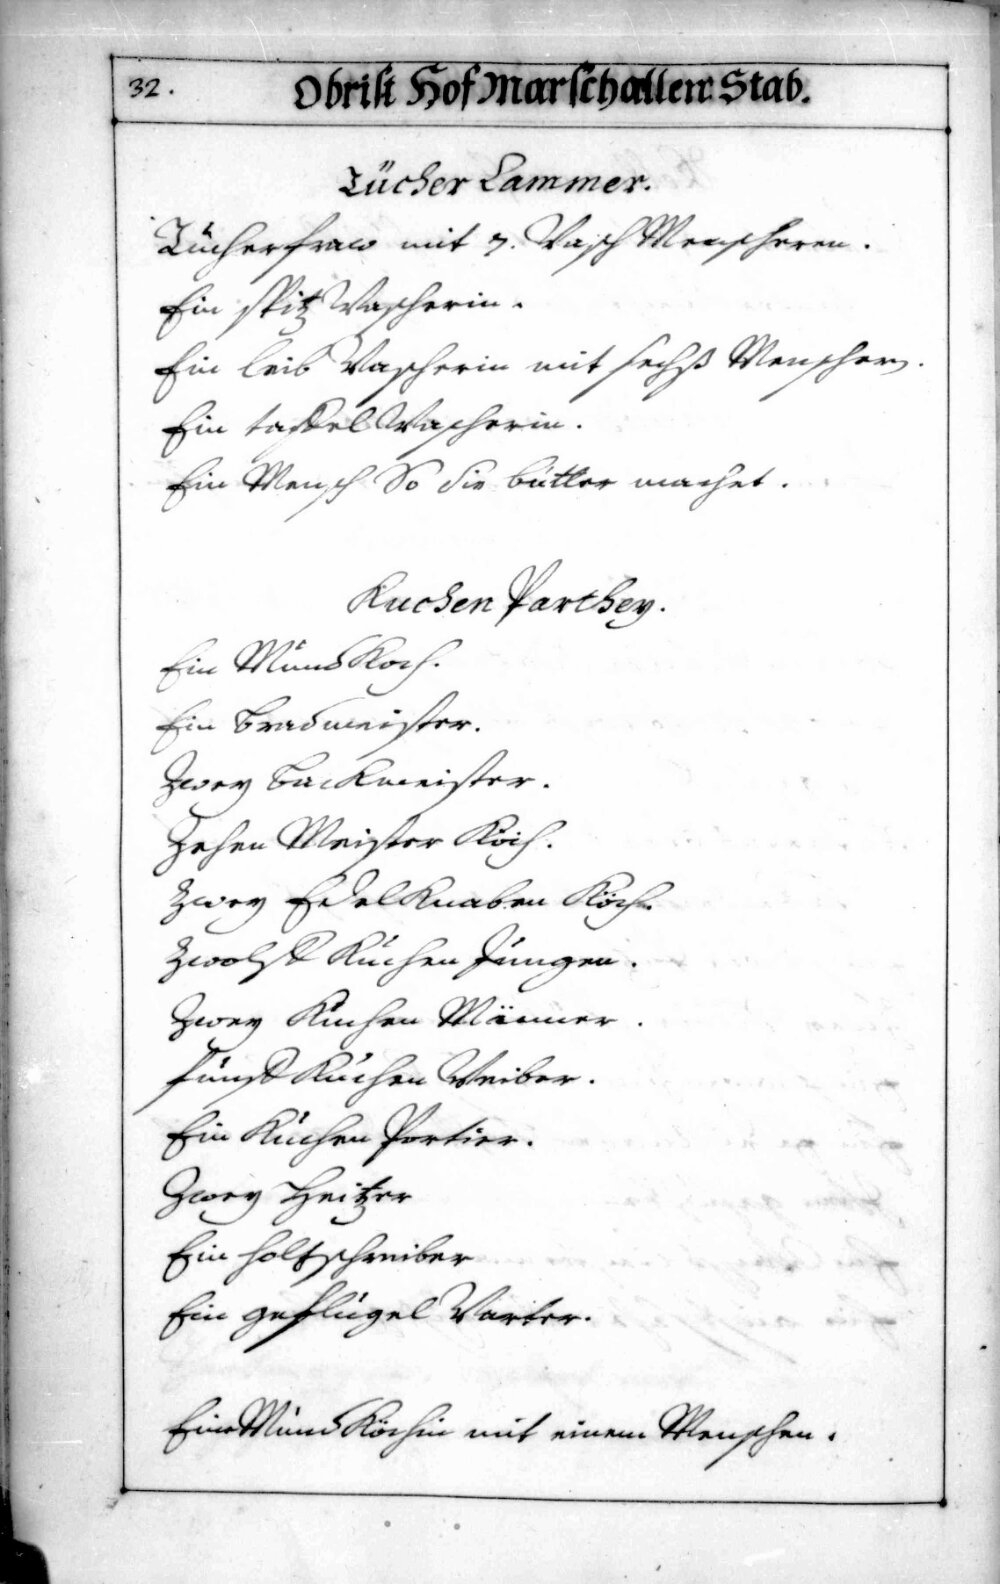 32.
Obrist Hof Marschallen Stab.
Tücher Cammer.
Tücherfraw mit 7. Wasch Menscheren.
Ein spitz Wascherin.
Ein leib Wascherin mit sechß Menscher.
Ein taffel Wascherin.
Ein Mensch So die bütter machet.
Kuchen Parthey.
Ein Mund Koch.
Ein bradmeister.
Zwey backmeister.
Zehen Meister Köch.
Zwey Edel Knaben Köch.
Zwolff Kuchen Jungen.
Zwey Kuchen Männer.
fünff Kuchen Weiber.
Ein Kuchen Portier.
Zwey Heitzer
Ein holtschreiber
Ein geflügel Warter.
Eine Mund Köchin mit einem Menschen.